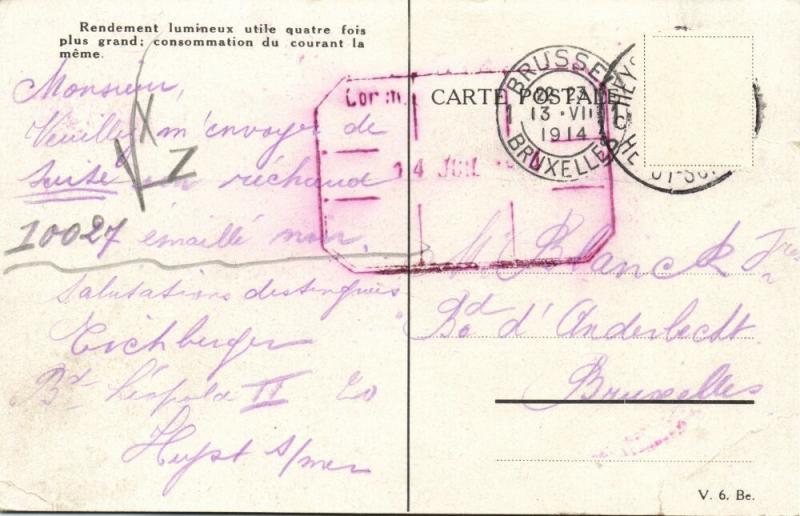 Rendement lumineux utile quatre fois
plus grand; consommation du courant la
même.
Monsieur,
Veuillez m'envoyer de
suite un réchaud
10027 émaillé noir.
Salutations distinguées
Eichberger
Bd Léopold II 20
Heyst s/mer
X
I
CARTE POSTALE
BRUSSEL
1 22-23 1
13 · VII
1914
BRUXELLES
14 JUIL
M Blanck Fres
Bd d'Anderlecht
Bruxelles
V. 6. Be.